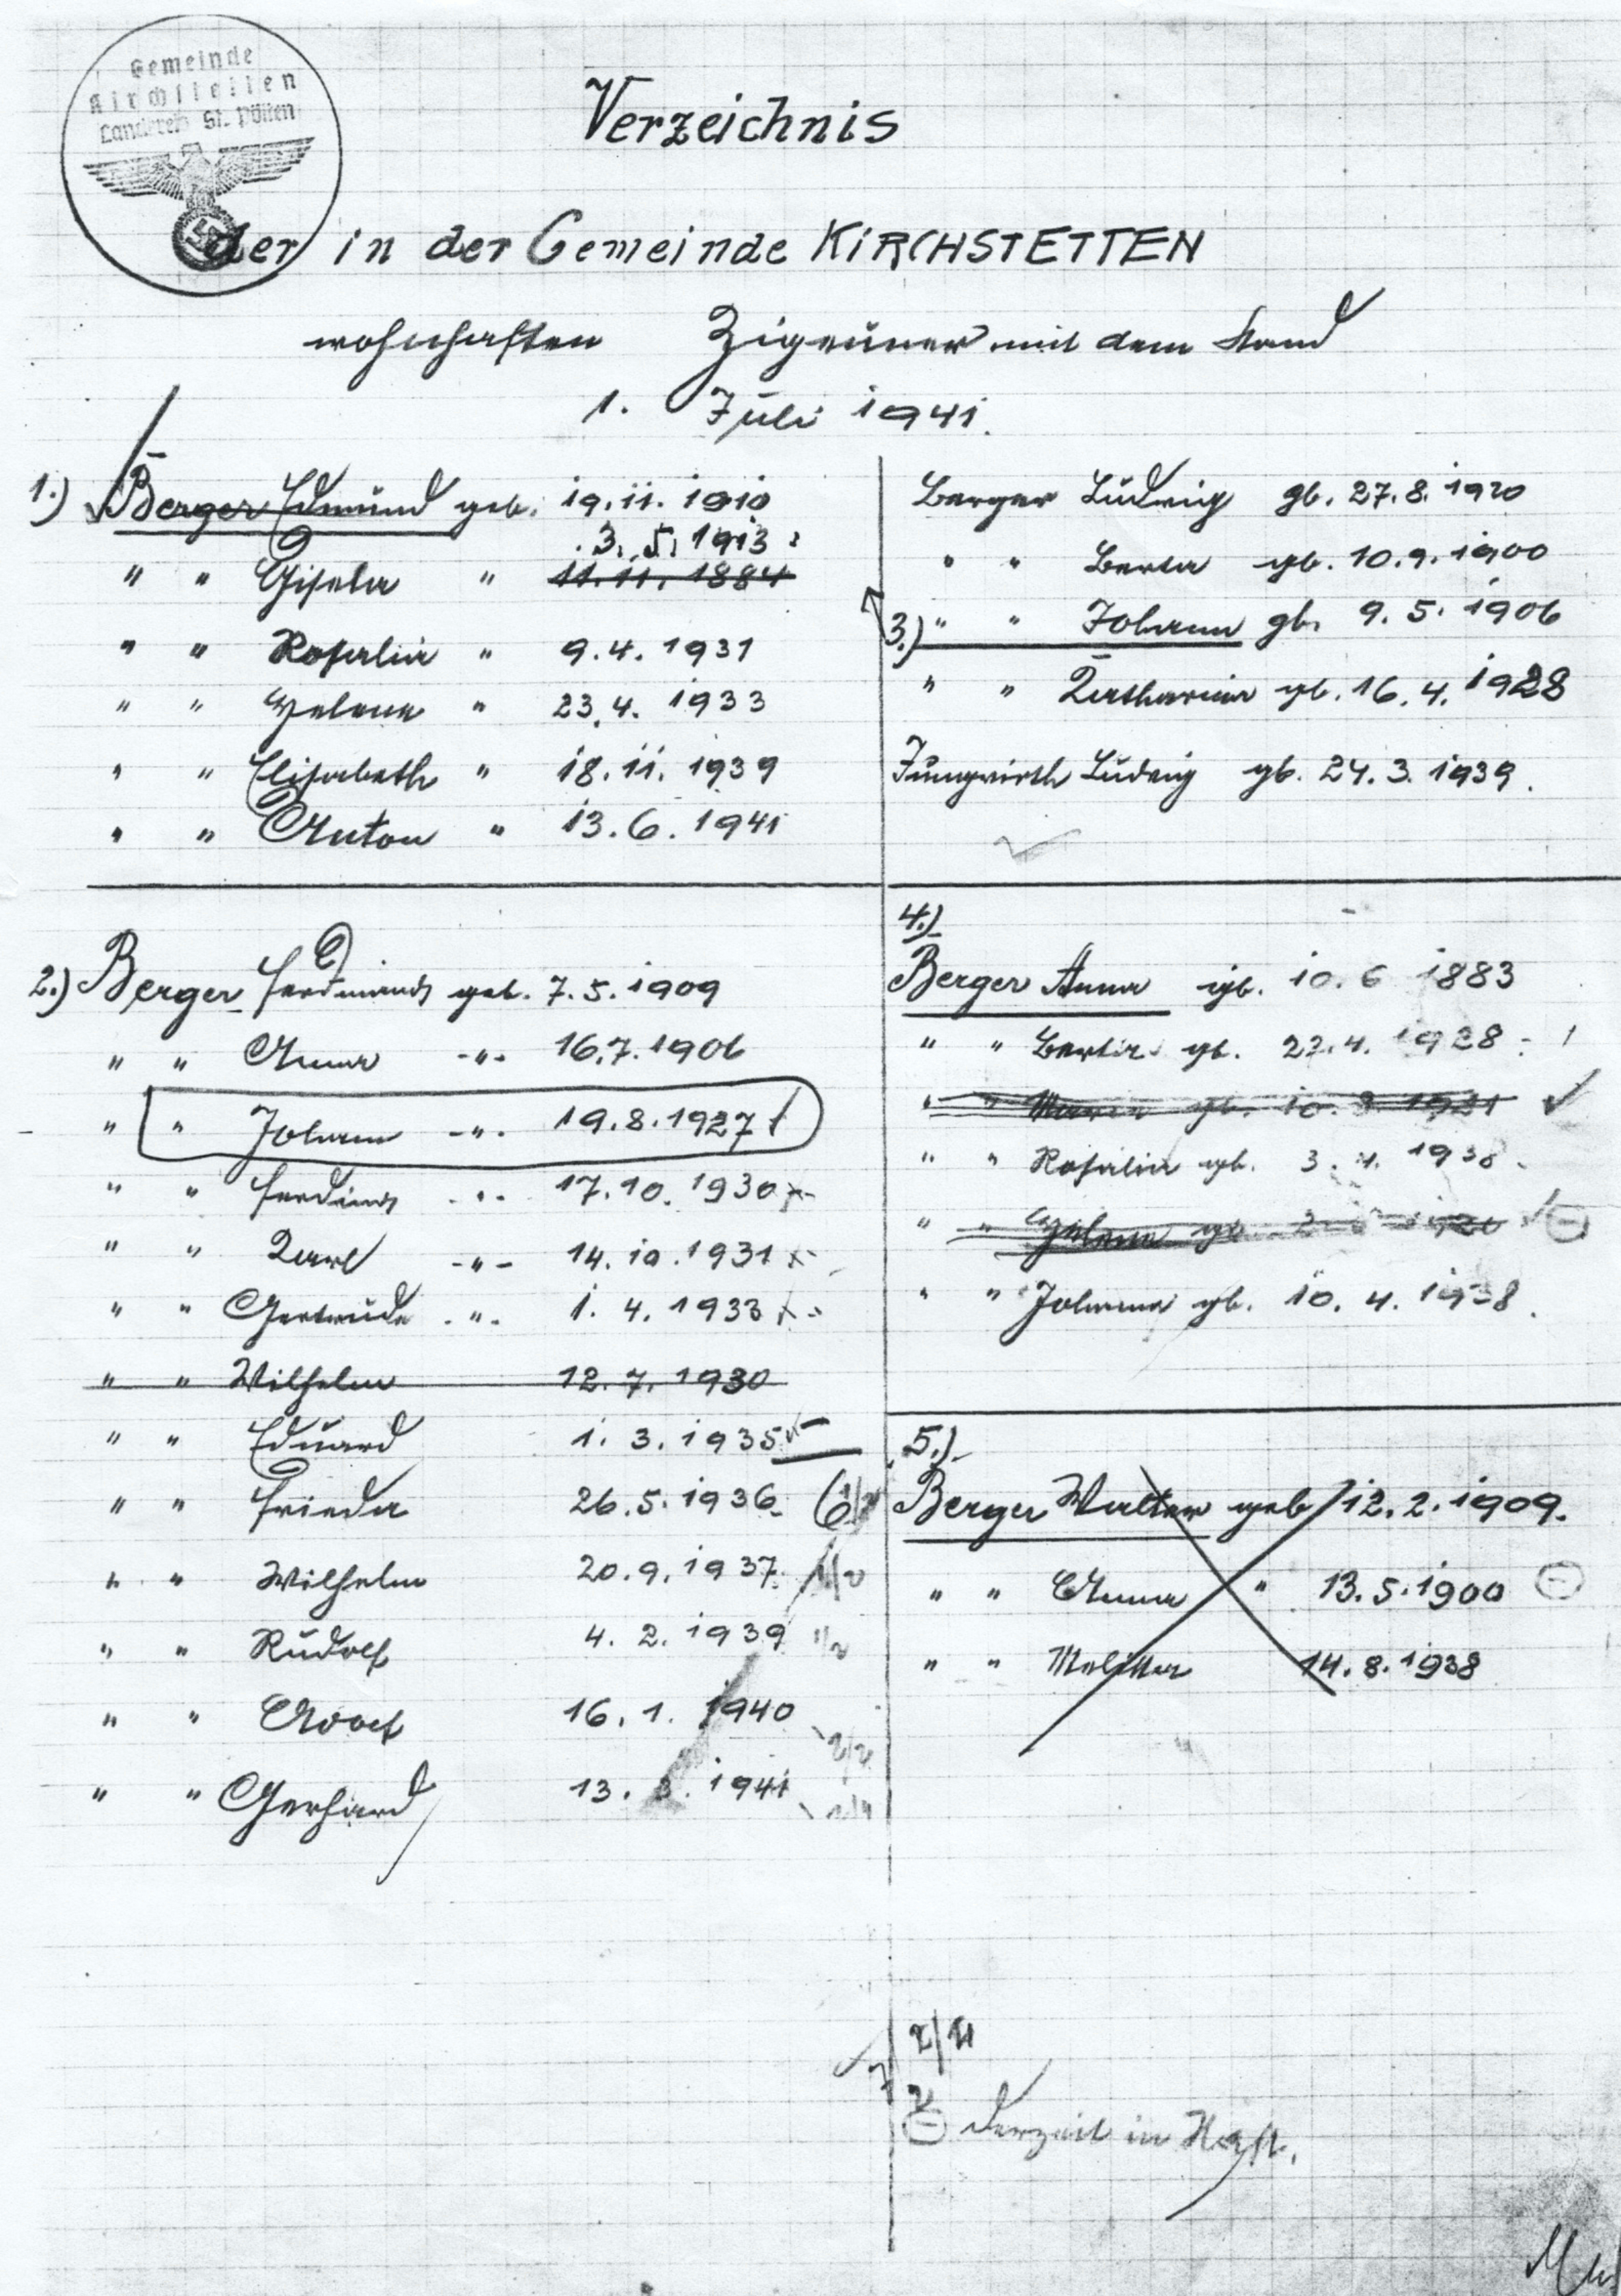 Gemeinde
Kirchstetten
Landkreis St. Pölten
Verzeichnis
der in der Gemeinde KIRCHSTETTEN
wohnhaften Zigeuner mit dem Stand
1. Juli 1941.
1.) Berger Edmund geb. 19.11.1910
3.5.1913
" " Gisela " 11.11.1884
" " Rosalia " 9.4.1931
" " Helene " 23.4.1933
" " Elisabeth " 18.11.1939
" " Anton " 13.6.1941
2.) Berger Ferdinand geb. 7.5.1909
" " Anna -"- 16.7.1906
" " Johann -"- 19.8.1927
" " Ferdinand -"- 17.10.1930
" " Karl -"- 14.10.1931
" " Gertrude -"- 1.4.1933
" " Wilhelm 12.7.1930
" " Eduard 1.3.1935
" " Frieda 26.5.1936
" " Wilhelm 20.9.1937
" " Rudolf 4.2.1939
" " Adolf 16.1.1940
" " Gerhard 13.3.1941
Berger Ludwig gb. 27.8.1920
" " Berta gb. 10.9.1900
3.) " " Johann gb. 9.5.1906
" " Katharina gb. 16.4.1928
Jungwirth Ludwig gb. 24.3.1939.
4.)
Berger Anna gb. 10.6 1883
" " Berta gb. 22.4.1928
" " Maria gb. 10. 1921
" " Rosalia gb. 3.4.1938
" " Helene gb.
" " Johanna gb. 10.4.
5.)
Berger Walter geb 12.2.1909.
" " Anna " 13.5.1900
" " Melitta 14.8.1938
derzeit in Haft.